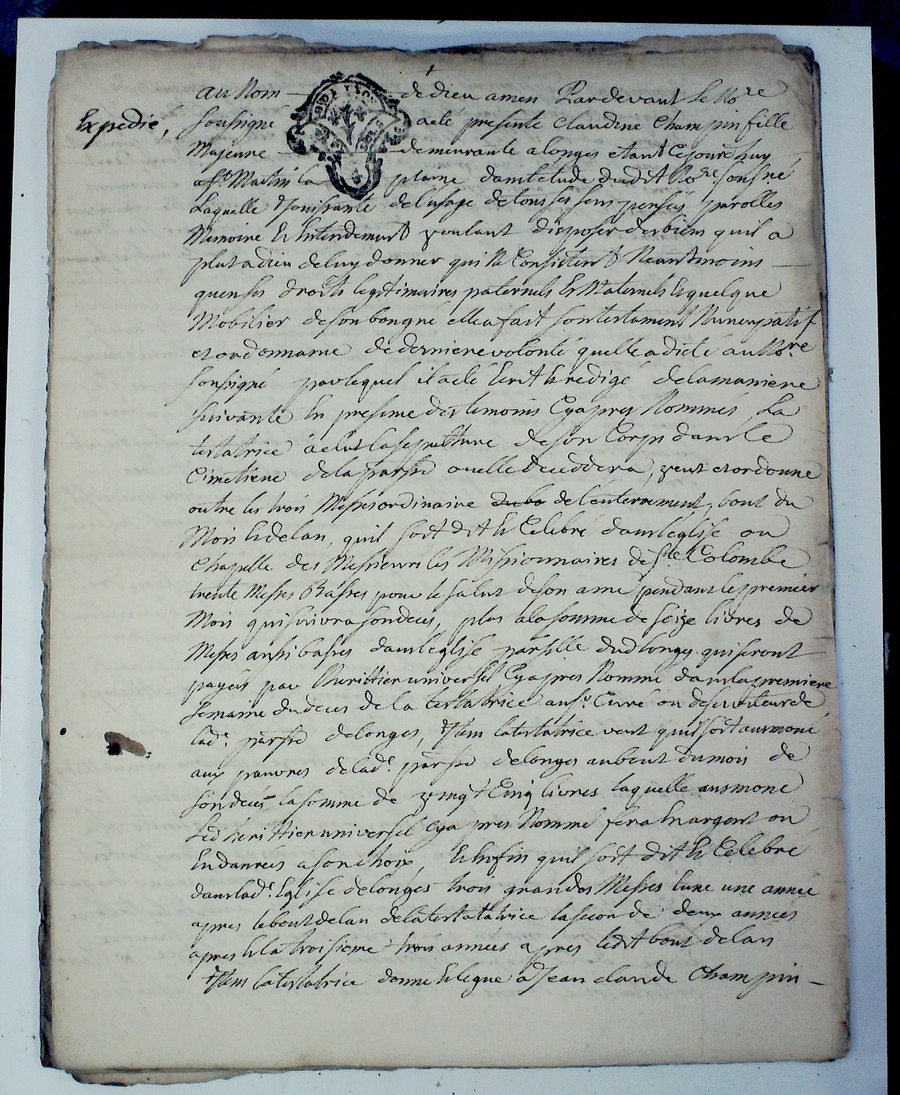 Expedié,
au Nom de dieu amen Pardevant le No.re
soussigné a ete presente Claudine Champin fille
Majeure demeurante a longes etant Cejourdhuy
a S.t Martin la plaine dans letude dudit No.re sousné
Laquelle Jouissante de lusage de tous ses sens pensées parolles
Memoire Et Entendement voulant disposer des biens quil a
plut a dieu de luy donner qui Ne Consistent Neantmoins
quen ses droits legitimaires paternels Et Maternels Et quelque
Mobilier de son elle a fait son testament Nuncupatif
et ordonnance de derniere volonté quelle a dicté au No.re
soussigné par lequel il a ete Ecrit Et redigé de la maniere
suivante En presence des temoins Cyapres Nommés La
testatrice à elut la sepulture de son Corps dans le
Cimetiere de la parsse ou elle deceddera, veut et ordonne
outre les trois Messes ordinaire de lenterrement, bout du
Mois Et de lan, quil soit dit Et Celebré dans leglise ou
Chapelle des Messieurs les Missionnaires de S.te Colombe
trente Messes Basses pour le salut de son ame pendant le premier
Mois qui suivra son deces, plus a la somme de seize livres de
Messes aussi basses dans leglise parslle dud longes qui seront
payées par lheritier universel Cyapres Nommé dans la premiere
semaine du deces de la testatrice au s.r Curé ou deserviteur de
lad.e parsse de longes, Item la testatrice veut quil soit aumoné
aux pauvres de lad.e parsse de longes au bout du mois de
son deces la somme de vingt Cinq livres laquelle aumone
led heritier universel Cyapres Nommé fera En argent ou
En danrées a son choix Et Enfin quil soit dit Et Celebré
dans lad.e Eglise de longes trois grandes Messes lune une année
apres le bout de lan de la testatatrice la seconde deux années
apres Et la troisieme trois années apres ledit bout de lan
Item la testatrice donne Et legue à Jean claude Champin